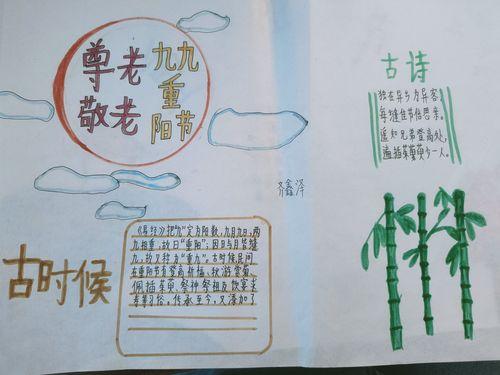 尊老
敬老
九九
重
阳节
古诗
独在异乡为异客,
每逢佳节倍思亲。
遥知兄弟登高处,
遍插茱萸少一人。
齐鑫泽
古时候
《易经》把"九"定为阳数,九月九日,两
九相重,故曰"重阳";因日与月皆逢
九,故又称为"重九"。古时候民间
在重阳节有登高祈福、秋游赏菊、
佩插茱萸、祭神祭祖及饮宴求
寿等习俗。传承至今,又添加了